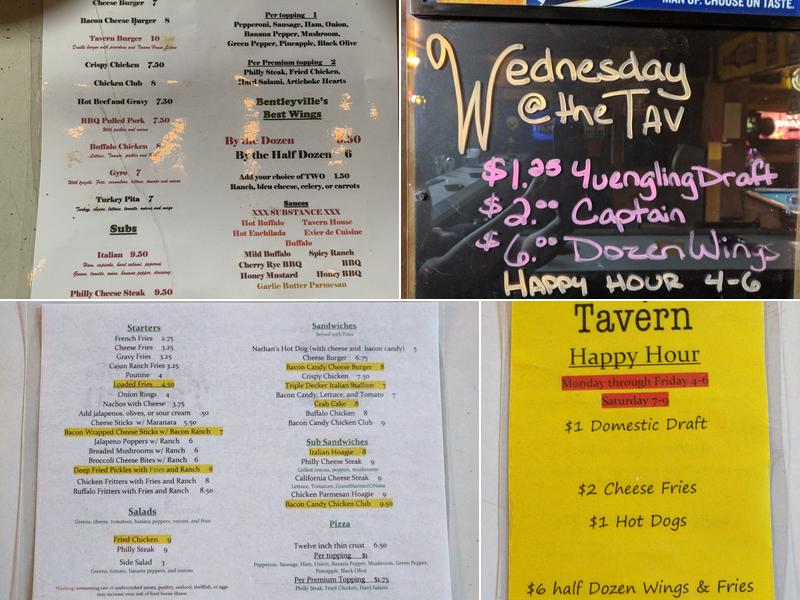 Cheese Burger 7
Bacon Cheese Burger 8
Tavern Burger 10
Crispy Chicken 7.50
Chicken Club 8
Hot Beef and Gravy 7.50
BBQ Pulled Pork 7.50
With pickles and onions
Buffalo Chicken 8
Lettuce, Tomato, pickles and
Gyro 7
Turkey Pita 7
Turkey, cheese, lettuce, tomato, onions and mayo
Subs
Italian 9.50
Ham, capicola, hard salami, peperoni
Greens, tomato, onion, banana pepper, dressing
Philly Cheese Steak 9.50
Per topping 1
Pepperoni, Sausage, Ham, Onion,
Banana Pepper, Mushroom,
Green Pepper, Pineapple, Black Olive
Per Premium topping 2
Philly Steak, Fried Chicken,
Hard Salami, Artichoke Hearts
Bentleyville's
Best Wings
By the Dozen 9.50
By the Half Dozen 6
Add your choice of TWO 1.50
Ranch, bleu cheese, celery, or carrots
Sauces
XXX SUBSTANCE XXX
Hot Buffalo Tavern House
Hot Enchilada Evier de Cuisine
Buffalo
Mild Buffalo Spicy Ranch
Cherry Rye BBQ BBQ
Honey Mustard Honey BBQ
Garlic Butter Parmesan
MAN UP. CHOOSE ON TASTE.
Wednesday
@ the TAV
$1.25 Yuengling Draft
$2.00 Captain
$6.00 Dozen Wings
HAPPY HOUR 4-6
Starters
French Fries 2.75
Cheese Fries 3.25
Gravy Fries 3.25
Cajun Ranch Fries 3.25
Poutine 4
Loaded Fries 4.50
Onion Rings 4
Nachos with Cheese 3.75
Add jalapenos, olives, or sour cream .50
Cheese Sticks w/ Maranara 5.50
Bacon Wrapped Cheese Sticks w/ Bacon Ranch 7
Jalapeno Poppers w/ Ranch 6
Breaded Mushrooms w/ Ranch 6
Broccoli Cheese Bites w/ Ranch 6
Deep Fried Pickles with Fries and Ranch 6
Chicken Fritters with Fries and Ranch 8
Buffalo Fritters with Fries and Ranch 8.50
Salads
Greens, cheese, tomatoes, banana peppers, onions, and fries
Fried Chicken 9
Philly Steak 9
Side Salad 3
Greens, tomato, banana peppers, and onions
Warning: consuming raw or undercooked meats, poultry, seafood, shellfish, or eggs
may increase your risk of food borne illness
Sandwiches
Served with Fries
Nathan's Hot Dog (with cheese and bacon candy) 5
Cheese Burger 6.75
Bacon Candy Cheese Burger 8
Crispy Chicken 7.50
Triple Decker Italian Stallion 7
Bacon Candy, Lettuce, and Tomato 7
Crab Cake 8
Buffalo Chicken 8
Bacon Candy Chicken Club 9
Sub Sandwiches
Italian Hoagie 8
Philly Cheese Steak 9
Grilled onions, peppers, mushrooms
California Cheese Steak 9
Lettuce, Tomatoes, GrandMarinerONoino
Chicken Parmesan Hoagie 9
Bacon Candy Chicken Club 9.50
Pizza
Twelve inch thin crust 6.50
Per topping $1
Pepperoni, Sausage, Ham, Onion, Banana Pepper, Mushroom, Green Pepper,
Pineapple, Black Olive
Per Premium Topping $1.75
Philly Steak, Fried Chicken, Hard Salami
Tavern
Happy Hour
Monday through Friday 4-6
Saturday 7-9
$1 Domestic Draft
$2 Cheese Fries
$1 Hot Dogs
$6 half Dozen Wings & Fries